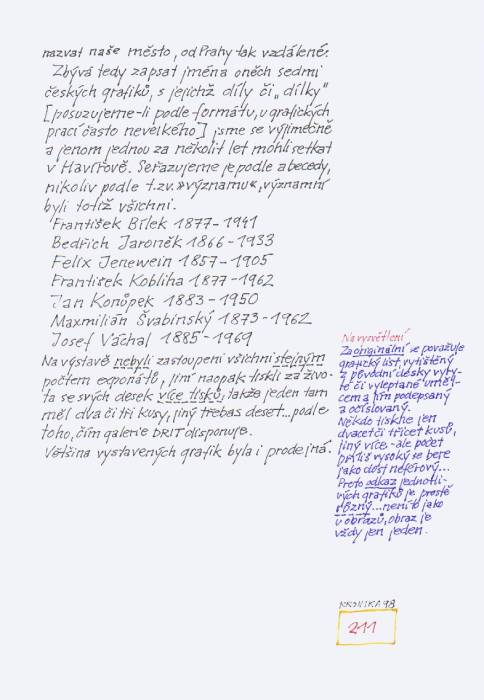 nazvat naše město, od Prahy tak vzdálené.
Zbývá tedy zapsat jména oněch sedmi
českých grafiků, s jejichž díly či „dílky"
[posuzujeme-li podle formátu, u grafických
prací často nevelkého] jsme se výjimečně
a jenom jednou za několik let mohli setkat
v Havířově. Seřazujeme je podle abecedy,
nikoliv podle t.zv. »významu«, významní
byli totiž všichni.
František Bílek 1877-1941
Bedřich Jaroněk 1866-1933
Felix Jenewein 1857-1905
František Kobliha 1877-1962
Jan Konůpek 1883-1950
Maxmilián Švabinský 1873-1962
Josef Váchal 1885-1969
Na výstavě nebyli zastoupeni všichni stejným
počtem exponátů, jiní naopak tiskli za živo-
ta se svých desek více tisků, takže jeden tam
měl dva či tři kusy, jiný třebas deset...podle
toho, čím galerie DRIT disponuje.
Většina vystavených grafik byla i prodejná.
Na vysvětlení
Za originální se považuje
grafický list, vytištěný
z původní desky vyry-
té či vyleptané uměl-
cem a jím podepsaný
a očíslovaný.
Někdo tiskne jen
dvacet či třicet kusů,
jiný více - ale počet
příliš vysoký se bere
jako dost neférový...
Proto odkaz jednotli-
vých grafiků je prostě
různý...není to jako
u obrazů, obraz je
vždy jen jeden.
KRONIKA 98
211